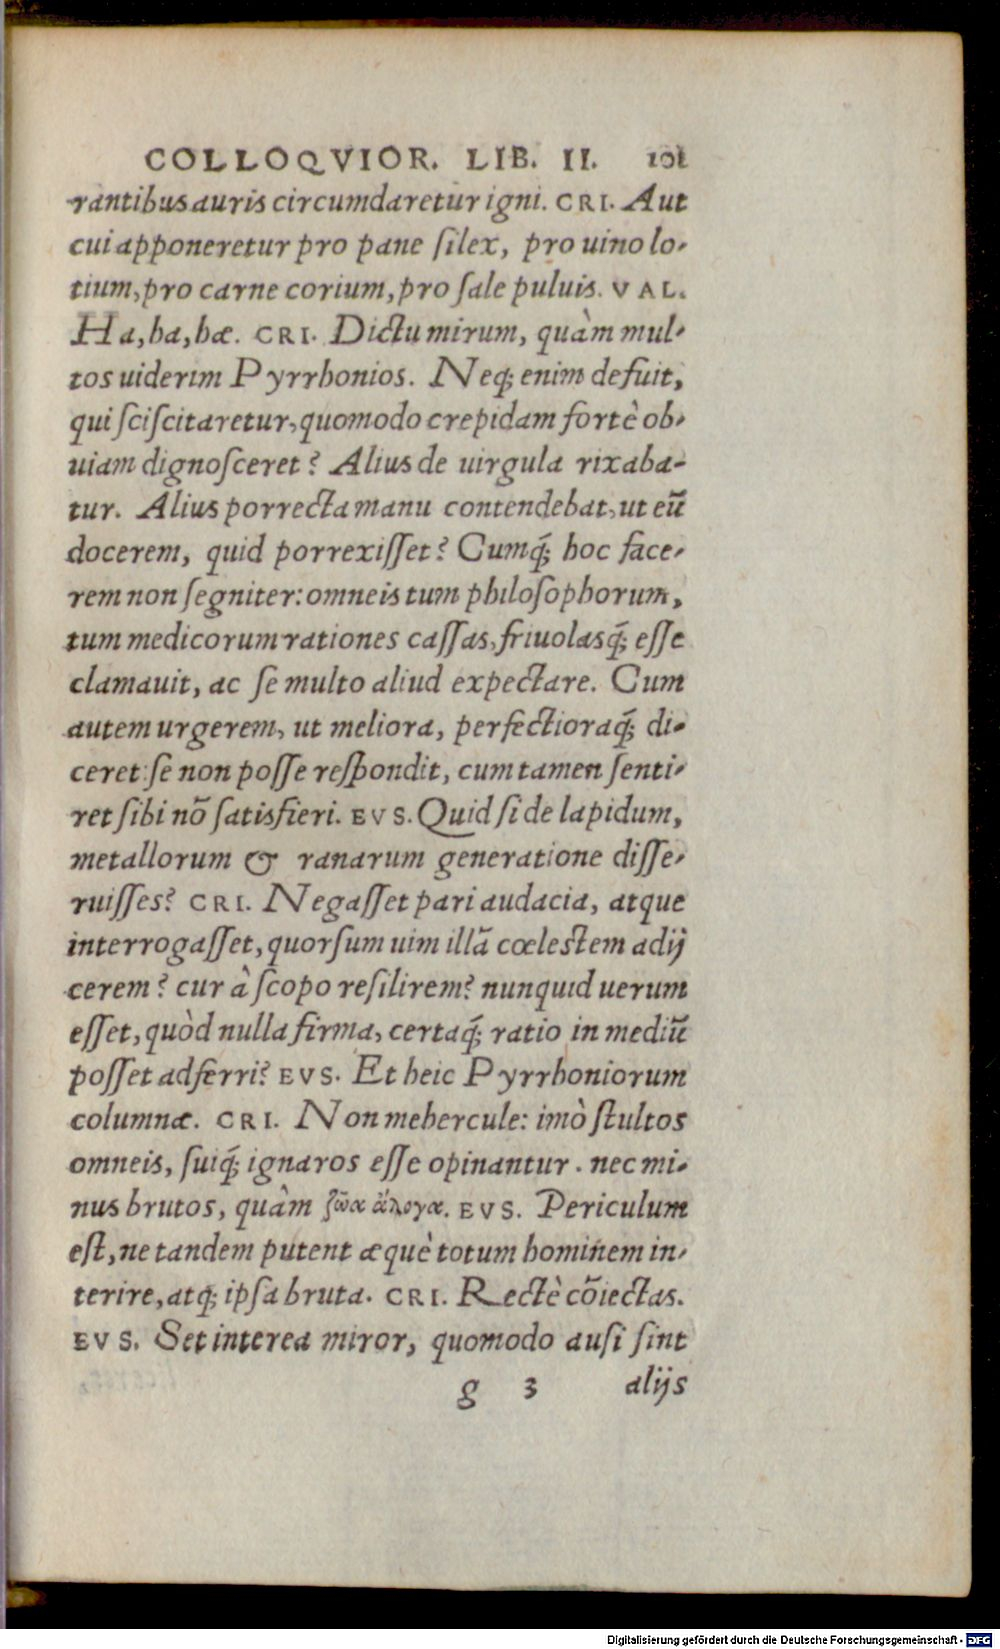 COLLOQVIOR. LIB. II. 101
rantibus auris circumdaretur igni. CRI. Aut
cui apponeretur pro pane silex, pro uino lo-
tium, pro carne corium, pro sale puluis. VAL.
Ha, ha, hæ. CRI. Dictu mirum, quàm mul-
tos uiderim Pyrrhonios. Neq; enim defuit,
qui sciscitaretur, quomodo crepidam fortè ob-
uiam dignosceret? Alius de uirgula rixaba-
tur. Alius porrecta manu contendebat, ut eũ
docerem, quid porrexisset? Cumq́; hoc face-
rem non segniter: omneis tum philosophorum,
tum medicorum rationes cassas, friuolasq́; esse
clamauit, ac se multo aliud expectare. Cum
autem urgerem, ut meliora, perfectioraq́; di-
ceret: se non posse respondit, cum tamen senti-
ret sibi nõ satisfieri. EVS. Quid si de lapidum,
metallorum & ranarum generatione disse-
ruisses? CRI. Negasset pari audacia, atque
interrogasset, quorsum uim illã cœlestem adij
cerem? cur à scopo resilirem? nunquid uerum
esset, quòd nulla firma, certaq́; ratio in mediũ
posset adferri? EVS. Et heic Pyrrhoniorum
columnæ. CRI. Non mehercule: imò stultos
omneis, suiq́; ignaros esse opinantur. nec mi-
nus brutos, quàm ζῶα ἄλογα. EVS. Periculum
est, ne tandem putent æquè totum hominem in-
terire, atq; ipsa bruta. CRI. Rectè cõiectas.
EVS. Set interea miror, quomodo ausi sint
g 3 alijs
Digitalisierung gefördert durch die Deutsche Forschungsgemeinschaft - DFG